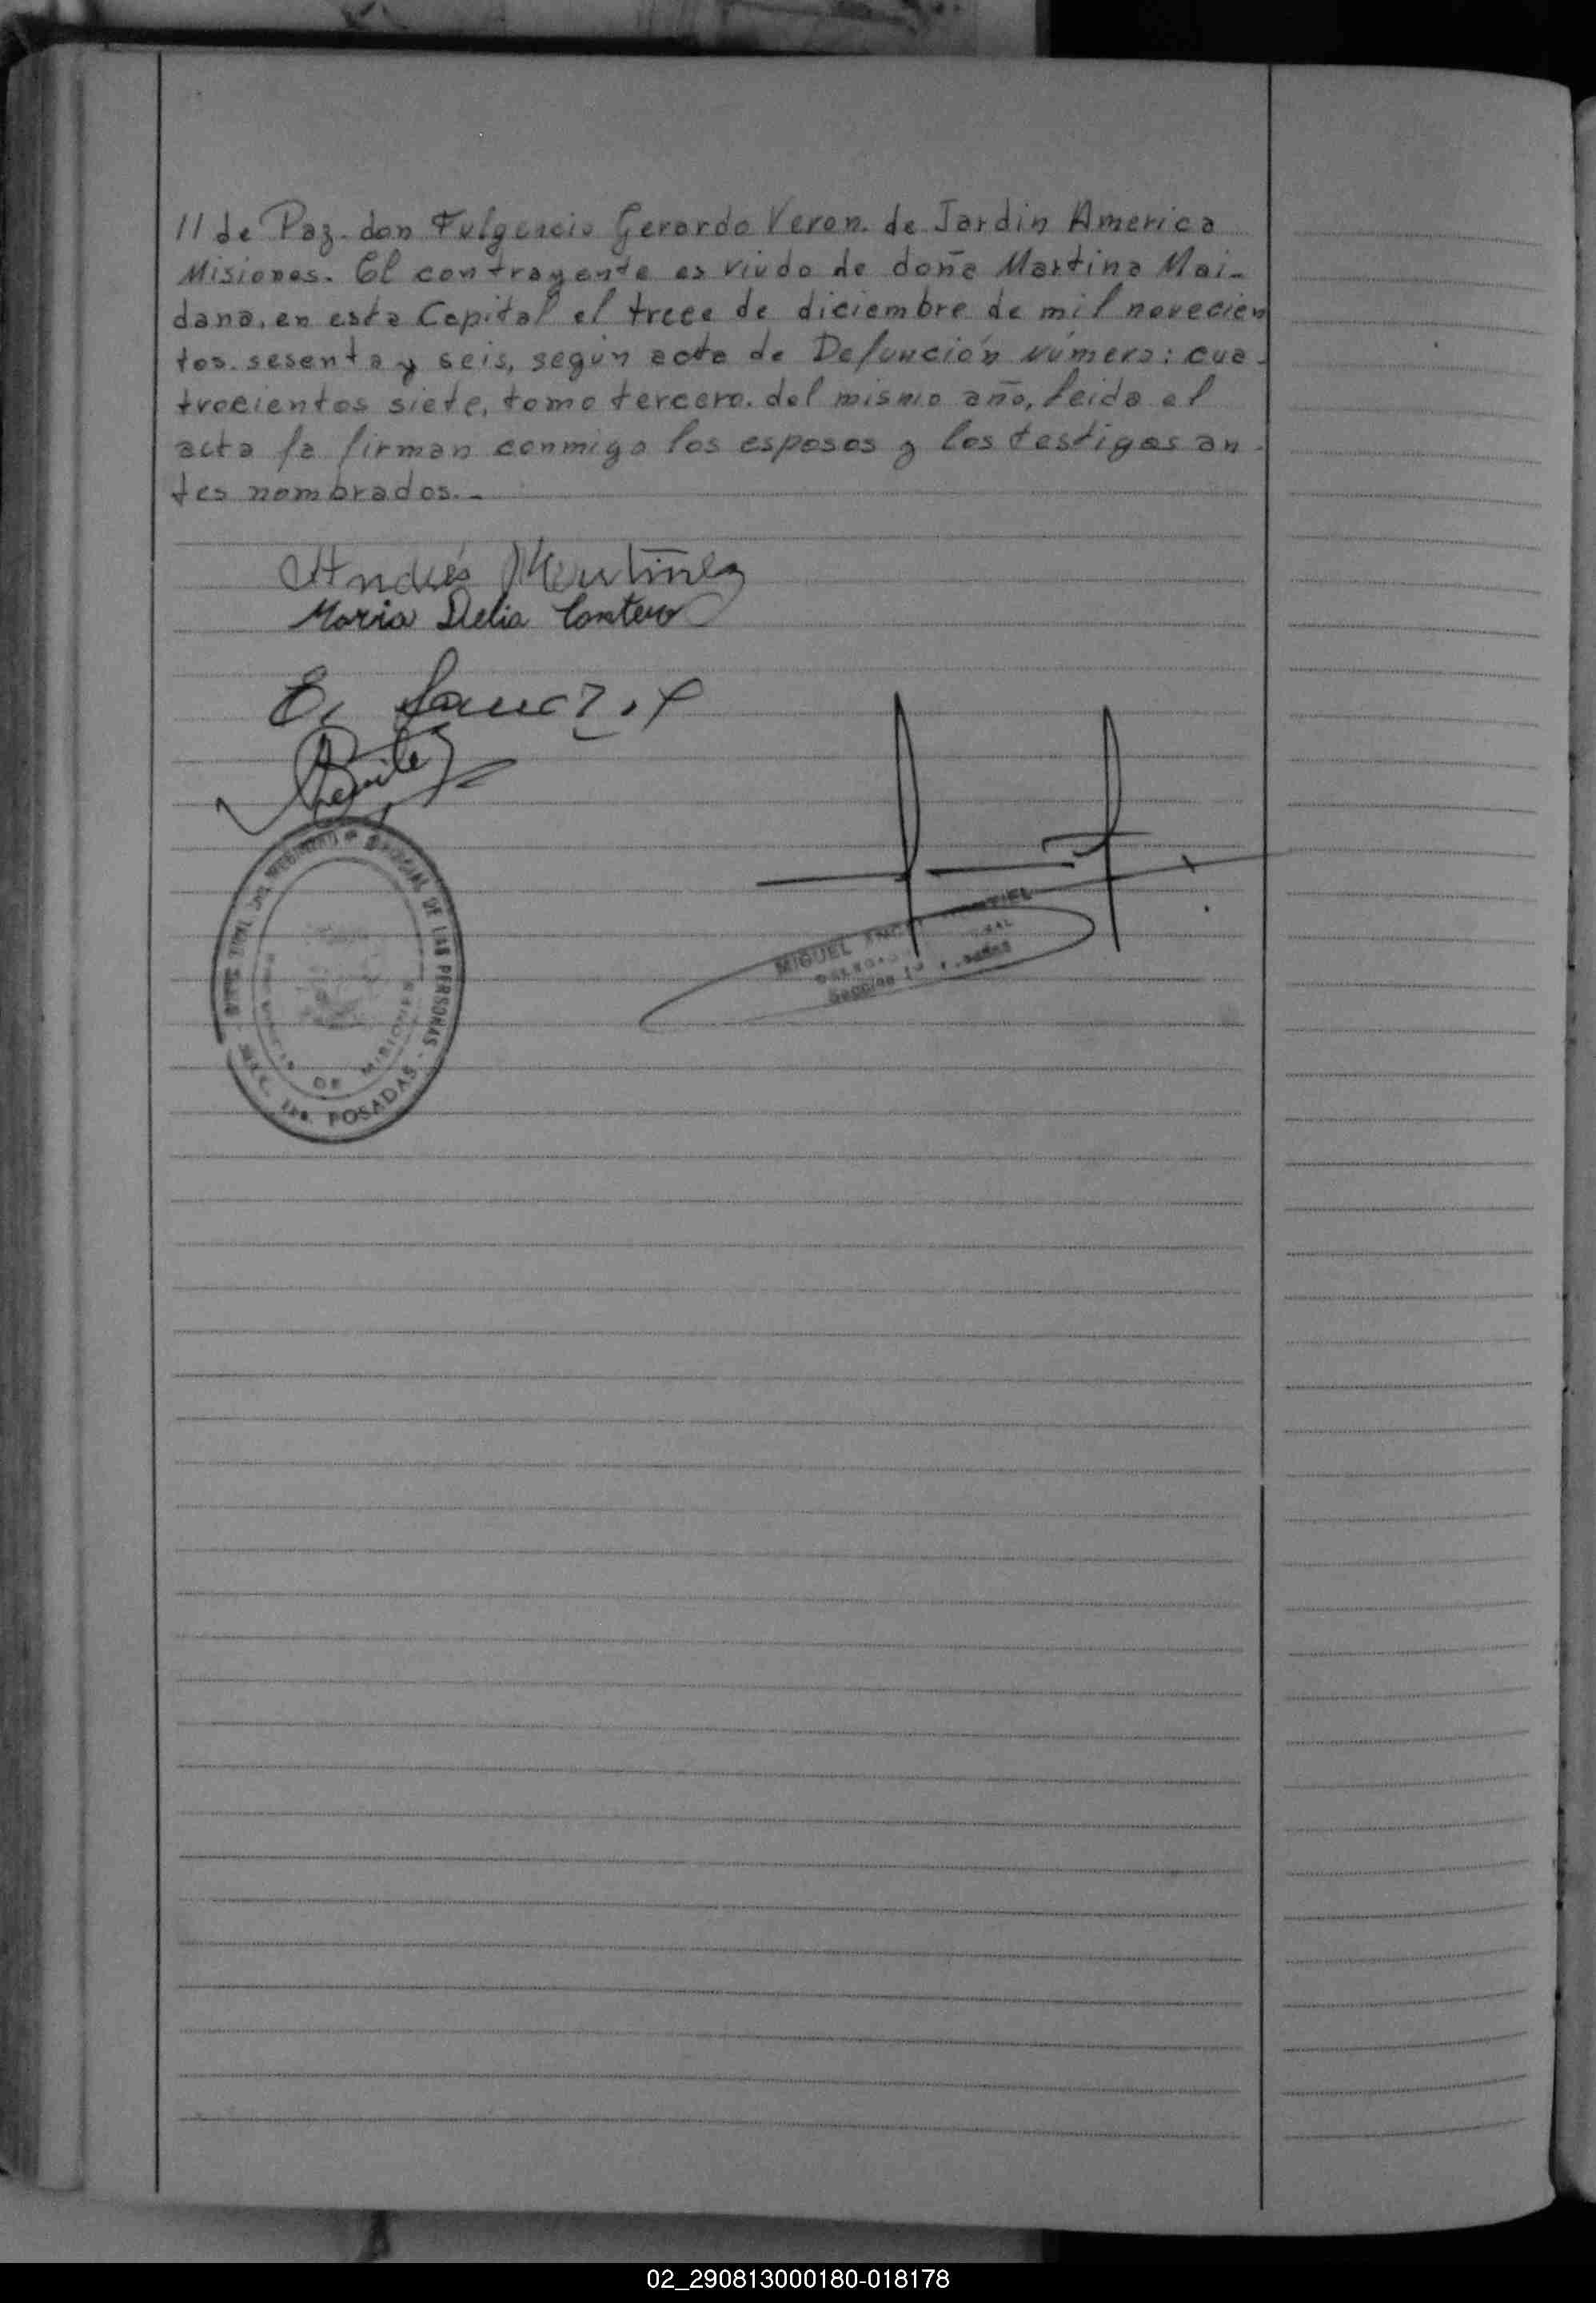 // de Paz. don Fulgencio Gerardo Veron. de Jardin America
Misiones. El contrayente es viudo de doña Martina Mai-
dana, en esta Capital el trece de diciembre de mil novecien
tos. sesenta y seis, según acta de Defunción número: cua-
trocientos siete, tomo tercero. del mismo año, leida el
acta la firman conmigo los esposos y los testigos an-
tes nombrados.-
Andrés Martinez
Maria Delia Cantero
DE LAS PERSONAS
DE MISIONES
1ra. POSADAS
MIGUEL
02_290813000180-018178